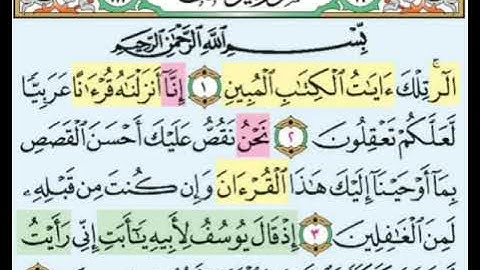 بِسْمِ اللَّهِ الرَّحْمَٰنِ الرَّحِيمِ
الٓرۚ تِلْكَ ءَايَٰتُ الْكِتَٰبِ الْمُبِينِ ١ إِنَّآ أَنزَلْنَٰهُ قُرْءَٰنًا عَرَبِيًّا
لَّعَلَّكُمْ تَعْقِلُونَ ٢ نَحْنُ نَقُصُّ عَلَيْكَ أَحْسَنَ الْقَصَصِ
بِمَآ أَوْحَيْنَآ إِلَيْكَ هَٰذَا الْقُرْءَانَ وَإِن كُنتَ مِن قَبْلِهِۦ
لَمِنَ الْغَٰفِلِينَ ٣ إِذْ قَالَ يُوسُفُ لِأَبِيهِ يَٰٓأَبَتِ إِنِّي رَأَيْتُ